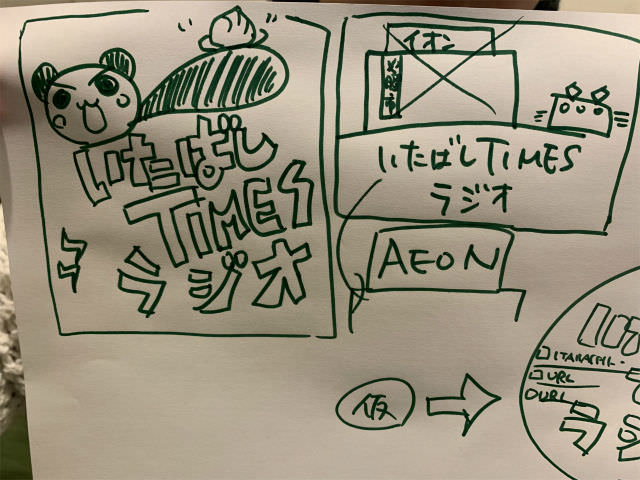 いたばし
TIMES
ラジオ
イオン
いたばしTIMES
ラジオ
AEON
仮
ITABASHI
URL
URL